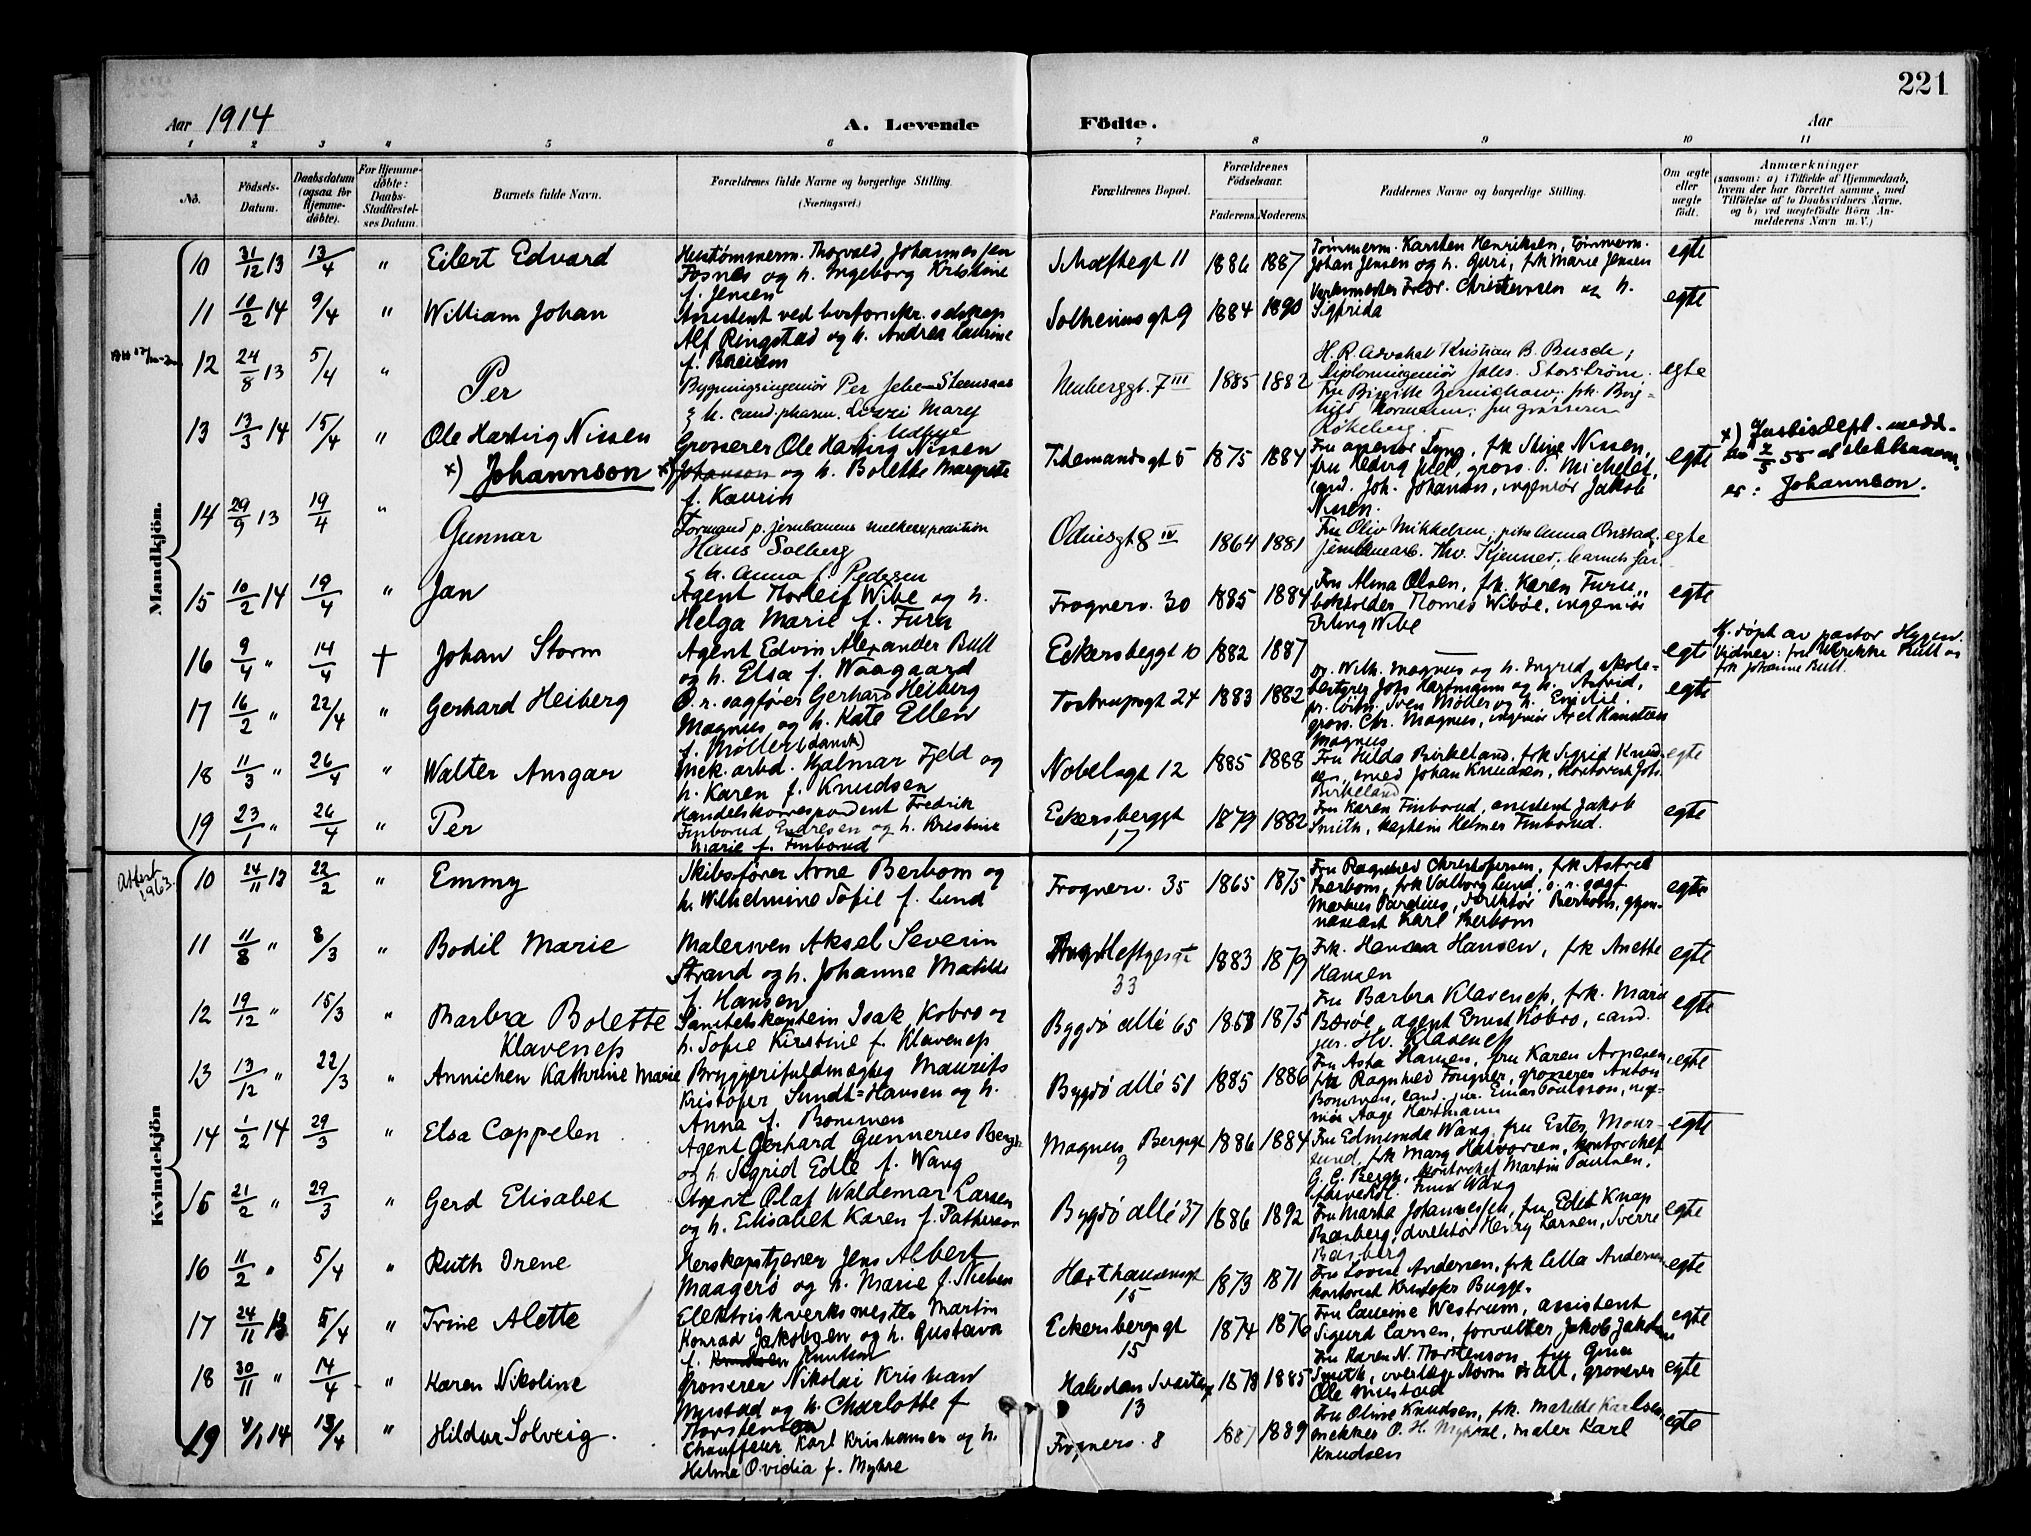 221
Aar 1914
A. Levende Födte.
Aar
1 2 3 4 5 6 7 8 9 10 11
No.
Födsels-Datum.
Daabsdatum (ogsaa for Hjemmedöbte).
For Hjemmedöbte: Daabs-Stadfæstelses Datum.
Barnets fulde Navn.
Forældrenes fulde Navne og borgerlige Stilling. (Næringsvei.)
Forældrenes Bopæl.
Forældrenes Födselsaar.
Faderens. Moderens.
Faddernes Navne og borgerlige Stilling.
Om ægte eller uægte födt.
Anmærkninger
(saasom: a) i Tilfælde af Hjemmedaab, hvem der har forrettet samme, med Tilföielse af to Daabsvidners Navne, og b) ved uægtefödte Börn Anmelderens Navn m. V.)
Mandkjön.
10 31/12 13 13/4 " Eilert Edvard
Hustømmerm. Thorvald Johannessen
Fosnes og h. Ingeborg Kristine
f. Jensen
Schæftegt 11 1886 1887
Tømmerm. Karsten Henriksen, Tømmerm.
Johan Jensen og h. Guri, frk Marie Jensen
egte
11 10/2 14 9/4 " William Johan
Assistent ved
Alf Ringstad og h. Andrea Laurine
f.
Solheimsgt 9 1884 1890
Christensen og h.
Sigfrida
egte
12 24/8 13 5/4 " Per
Bygningsingeniør Per
g h. cand. pharm. Mary
f. Udbye
Neuberggt. 7 III 1885 1882
H. R. Advokat Kristian B. Busch;
diplomingeniør Johs. Storstrøm.
Fru Birgitte
egte
13 13/3 14 15/4 " Ole Hartvig Nissen
x) Johannson
Grosserer Ole Hartvig Nissen
x) Johanson og h. Bolette Margrete
f. Kaurin
Tidemandsgt 5 1875 1884
frk Stine Nissen,
fru Hedvig gross. P. Michelet,
cand. Joh. Johanson, ingeniør Jakob
Nissen.
egte
x) Justisdept. medd.
2/5 55 at slektsnavn
er: Johannson.
14 29/9 13 19/4 " Gunnar
Formand p. jernbanens melkeexpedition
Hans Solberg
g h. Anna f. Pedersen
Odinsgt 8 IV 1864 1881
Fru Oliv Mikkelsen; Anna Onstad;
Thv. Kjenner, barnets far
egte
15 10/2 14 19/4 " Jan
Agent Thorleif Wibe og h.
Helga Marie f. Furu
Frognerv. 30 1885 1884
Fru Alma Olsen, frk. Karen Furu,
bokholder Thomes Wibøe, ingeniør
Erling Wibe
egte
16 9/4 " 14/4 † Johan Storm
Agent Edvin Alexander Bull
og h. Elsa f. Waagaard
Eckersberggt 10 1882 1887
—
egte
Hj. døpt av pastor Hygen.
Vidner: fru Bull og
frk Johanne Bull.
17 16/2 " 22/4 " Gerhard Heiberg
O. r. sagfører Gerhard Heiberg
Magnus og h. Kate Ellen
f. Møller (dansk)
Tostrupsgt 24 1883 1882
Wilh. Magnus og h. Ingrid, skole-
bestyrer Johs Hartmann og h. Astrid,
pr. løitn. Sven Møller og h. Emilie,
gross. Chr. Magnus, ingeniør Axel
Magnus
egte
18 11/3 " 26/4 " Walter Ansgar
Mek. arbd. Hjalmar Fjeld og
h. Karen f. Knudsen
Nobelsgt 12 1885 1888
Fru Hilda Birkeland, frk Sigrid Knud-
sen, smed Johan Knudsen, kontorist Joh.
Birkeland
egte
19 23/1 " 26/4 " Per
Handelskorrespondent Fredrik
Finborud Endresen og h. Kristine
Marie f. Finborud
Eckersberggt
17
1879 1882
Fru Karen Finborud, assistent Jakob
Smith, Helmer Finborud.
egte
Kvindekjön
Attest
1963.
10 24/11 13 22/2 " Emmy
Skibsfører Arne Berbom og
h. Wilhelmine Sofie f. Lund
Frognerv. 35 1865 1875
Fru Ragnhild Christophersen, frk Astrid
Berbom, frk Valborg Lund, o. r. sagf
Markus Pardius, direktør Berbom, gym-
nasiast Karl Berbom
egte
11 11/8 " 8/3 " Bodil Marie
Malersven Aksel Severin
Strand og h. Johanne Matilde
f. Hansen
Heftyesgt
33
1883 1879
Frk. Hanna Hansen, frk Anette
Hansen
egte
12 19/12 " 15/3 " Barbra Bolette
Klaveness
Sanitetskaptein Isak Kobro og
h. Sofie Kirstine f. Klaveness
Bygdö allé 65 1868 1875
Fru Barbra Klaveness, frk. Maria
Bærøe, agent Ernst Kobro, cand.
jur. Hv. Klaveness
egte
13 13/12 " 22/3 " Annichen Kathrine Marie
Bryggerifuldmægtig Maurits
Kristofer Sundt-Hansen og h.
Anna f. Bommen
Bygdö allé 51 1885 1886
Fru Asta Hansen, fru Karen Aspesen,
frk Ragnhild Fougner, grosserer Anton
Bommen, cand. jur. Einar Poulsson, inge-
niør Aage Hartmann
egte
14 1/2 14 29/3 " Elsa Cappelen
Agent Gerhard Gunnerius Bergh
og h. Sigrid Edle f. Wang
Magnus Bergsgt
9
1886 1884
Fru Edmunda Wang, fru Ester Mour-
sund, frk Marg Halvorsen, kontorchef
G. C. Bergh, kontorchef Martin Paulsen,
Wang
egte
15 21/2 " 29/3 " Gerd Elisabet
Agent Olaf Waldemar Larsen
og h. Elisabet Karen f. Patterson
Bygdö allé 37 1886 1892
Fru Marta Johannessen, fru Edit Knap
Basberg, direktør Henry Larsen, Sverre
Basberg
egte
16 11/2 " 5/4 " Ruth Irene
Herskapstjener Jens Albert
Maagerø og h. Marie f. Nielsen
Harthausensgt
15
1873 1871
Fru Lovise Andersen, frk Lilla Andersen
kontorist Kristofer Bugge.
egte
17 24/11 13 5/4 " Trine Alette
Elektriskverksmester Martin
Konrad Jakobsen og h. Gustava
f. Knutson
Eckersbergsgt
15
1874 1876
Fru Laurine Westrum, assistent
Sigurd Larsen, forvalter Jakob Jakobsen
egte
18 30/11 " 14/4 " Karen Nikoline
Grosserer Nikolai Kristian
Mustad og h. Charlotte f
Torstenson
Halvdan Svartesgt
13
1878 1885
Fru Karen N. Torstenson, fru Gina
Smith, overlæge grosserer
Ole Mustad
egte
19 4/1 14 13/4 " Hildur Solveig.
Chauffeur Karl Kristiansen og h.
Helma Ovidia f. Myhre
Frognerv. 8 1887 1889
Fru Oline Knudsen, frk. Matilde Karlsen,
snekker O. H. Myhre, maler Karl
Knudsen
egte